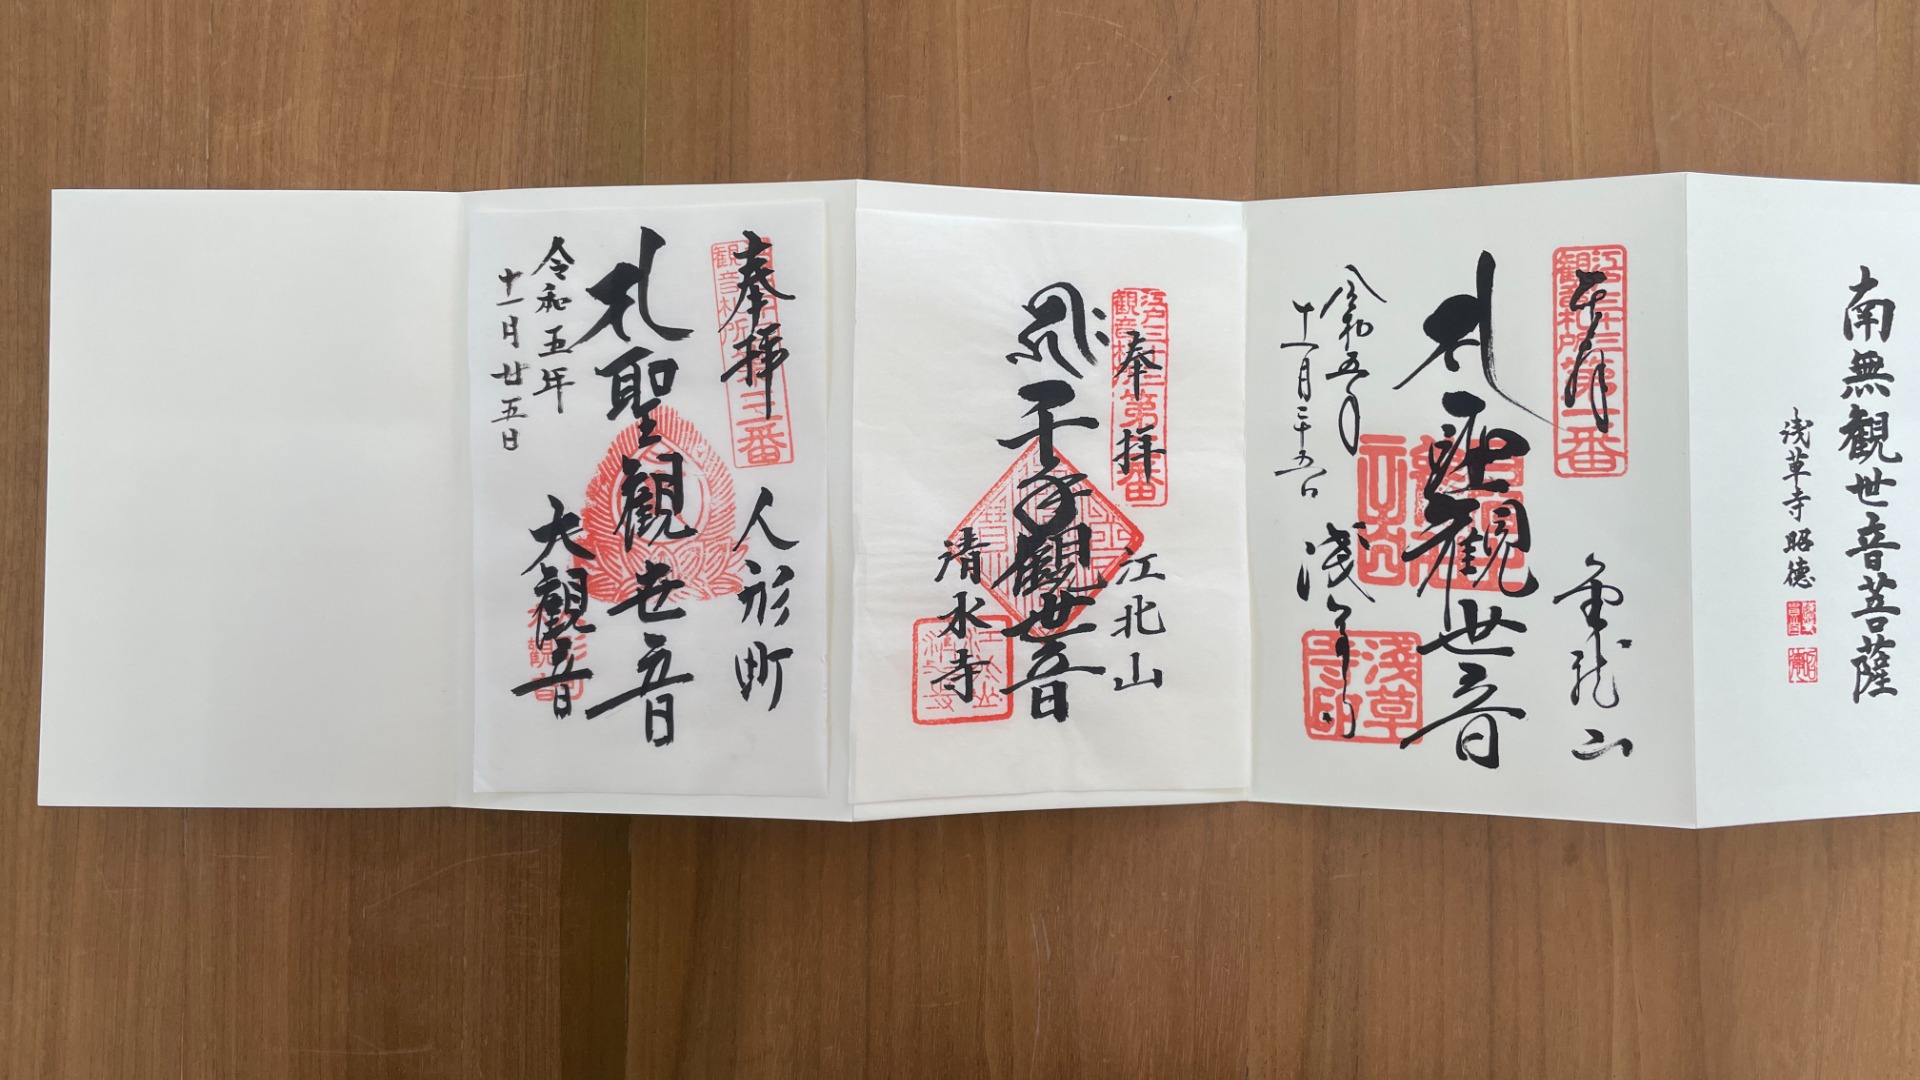 南無観世音菩薩
浅草寺昭徳
江戸三十三
観音札所第一番
奉拝
金龍山
聖觀世音
浅草寺
令和五年
十一月二十五日
浅草
寺印
江戸三十三
観音札所第二番
奉拝
江北山
千手觀世音
清水寺
観音札所第三番
奉拝
人形町
聖觀世音
大觀音
令和五年
十一月廿五日